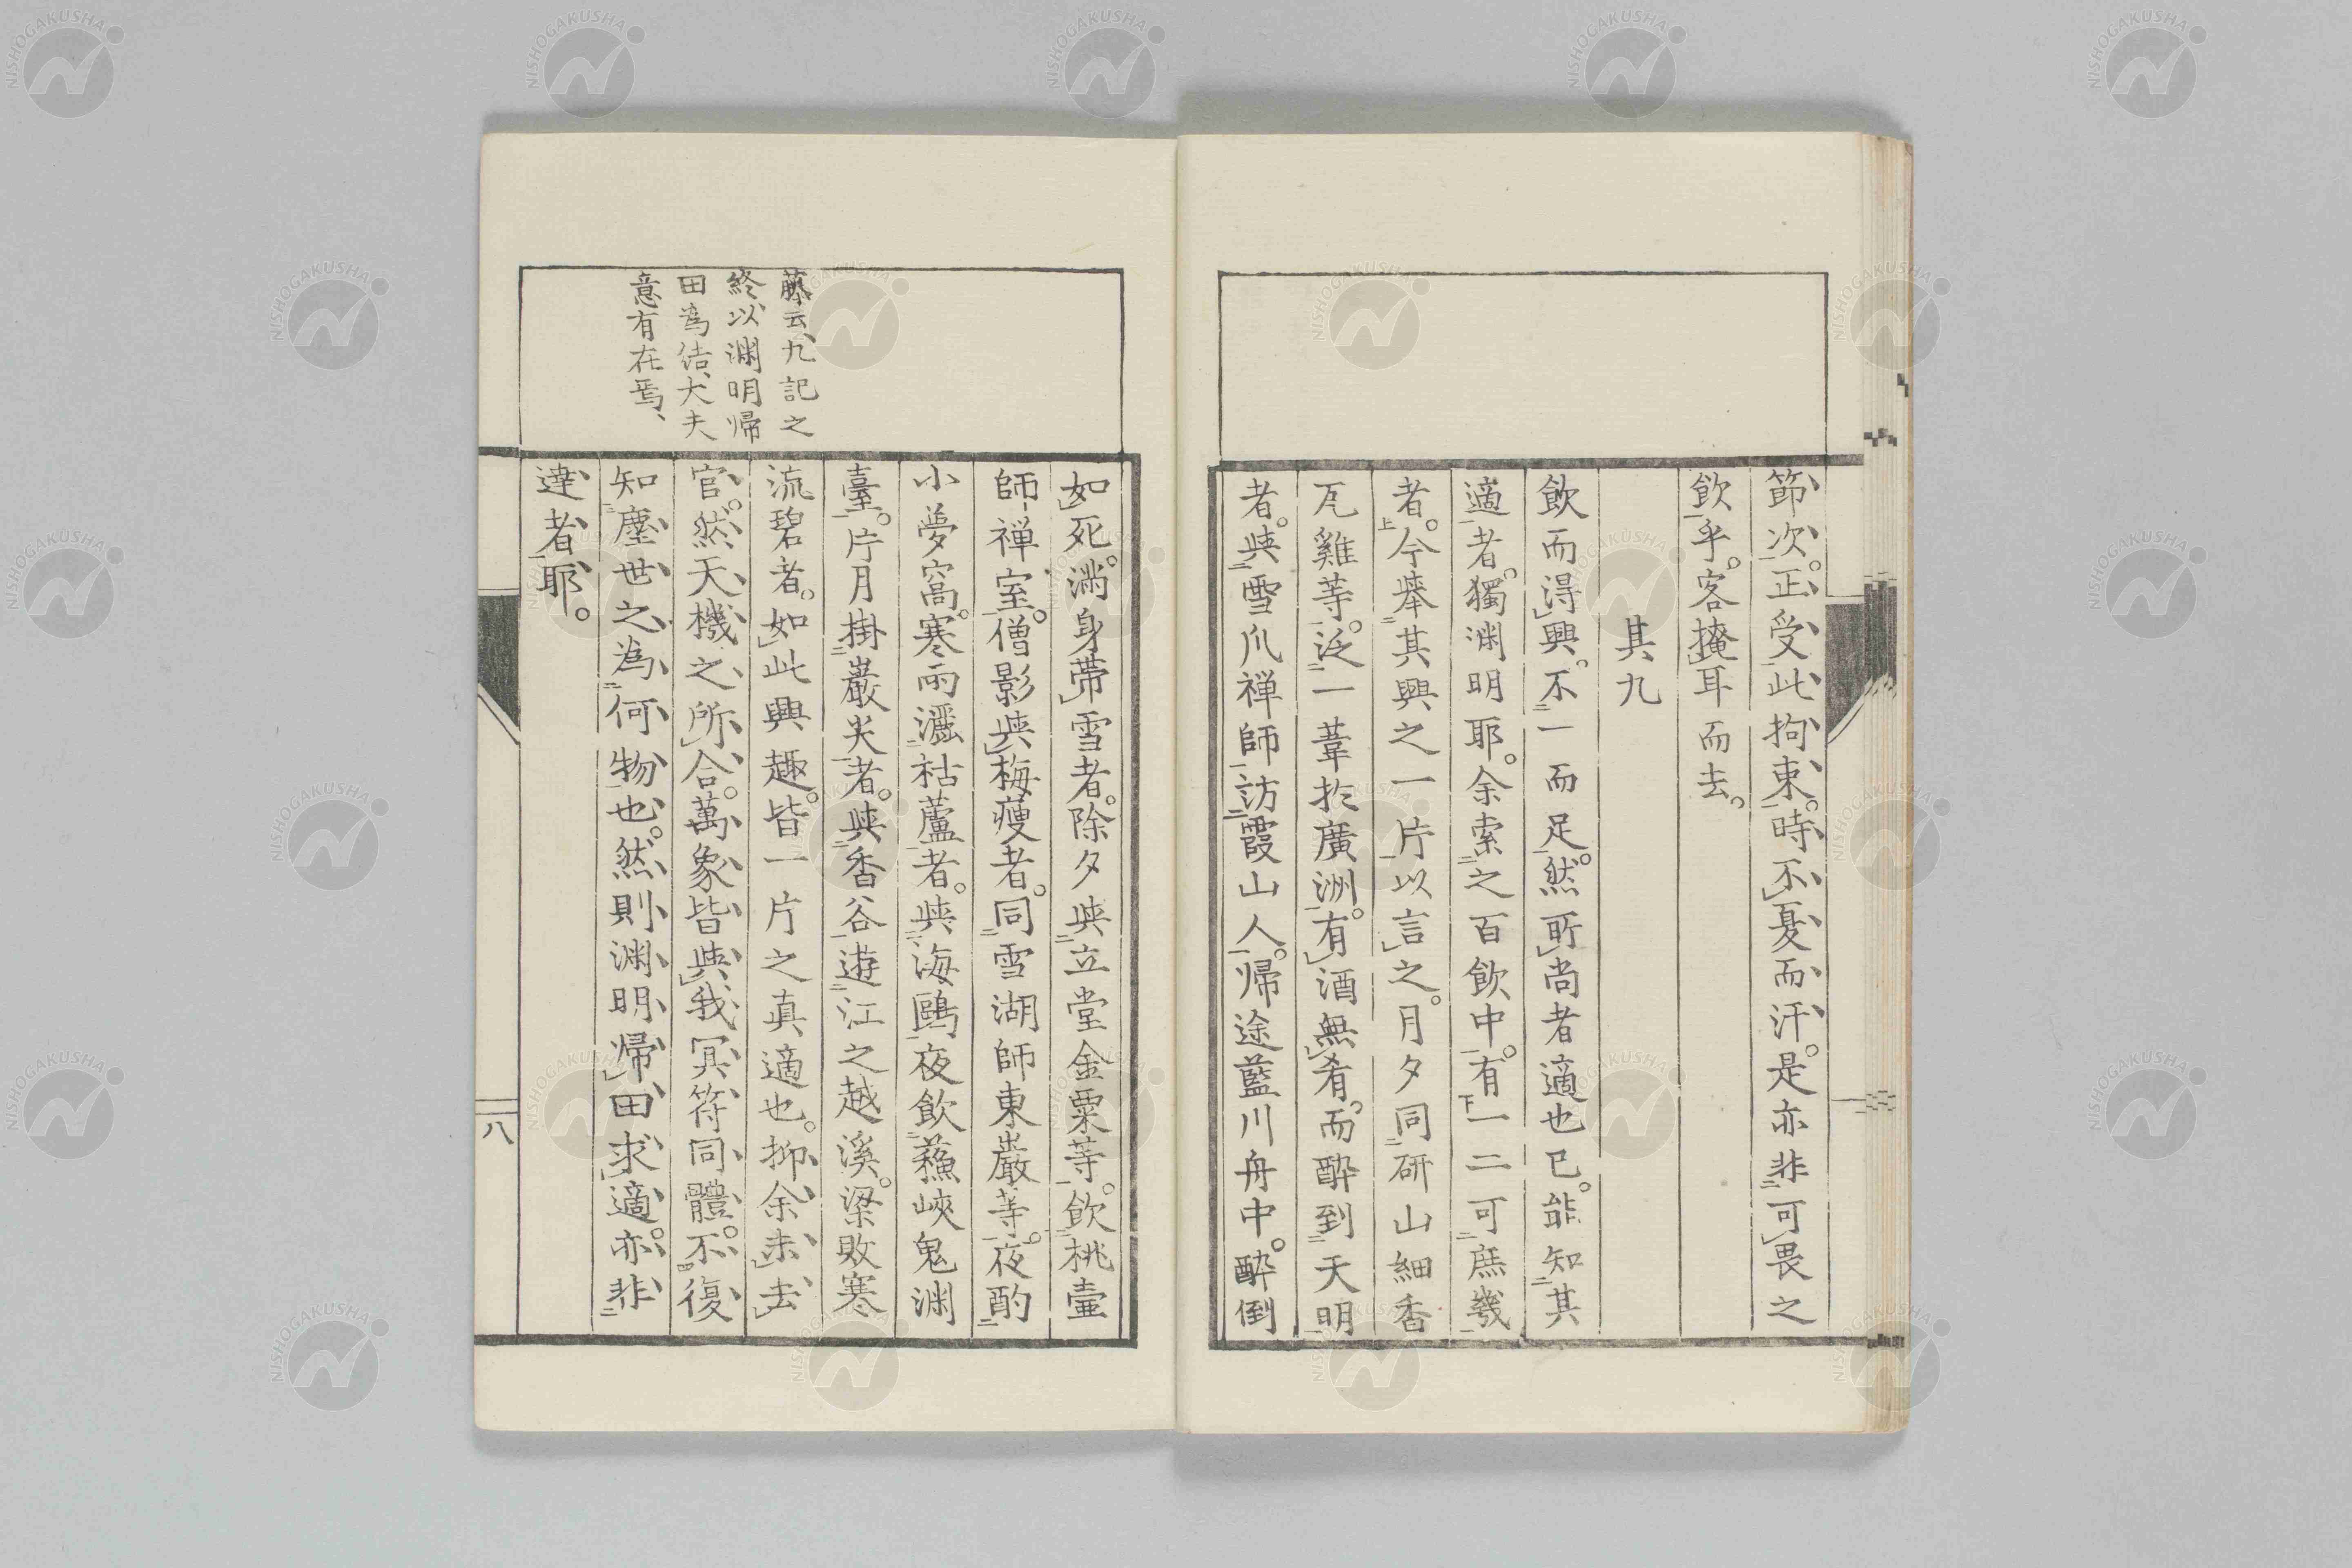 節次。正受此拘束。時不憂而汗。是亦非可畏之
飲乎。客掩耳而去。
其九
飲而得興。不一而足。然所尚者適也已。能知其
適者。獨渊明耶。余索之百飲中。有一二可庶幾
者。今擧其興之一片以言之。月夕同研山細香
瓦雞等。泛一葦於廣洲。有酒無肴。而酔到天明
者。與雪爪禅師訪霞山人。帰途藍川舟中。酔倒
如死。満身帶雪者。除夕與立堂金粟等。飲桃壷
師禅室。僧影與梅瘦者。同雪湖師東巖等。夜酌
小夢窩。寒雨灑枯蘆者。與海鷗夜飲蘓峽鬼渊
臺。片月掛巖尖者。與香谷遊江之越溪。梁敗寒
流碧者。如此興趣。皆一片之真適也。抑余未去
官。然天機之所合。萬象皆與我冥符同體。不復
知塵世之為何物也。然則渊明帰田求適。亦非
達者耶。
藤云、九記之
終、以渊明帰
田為結、大夫
意有在焉、
八
NISHOGAKUSHA